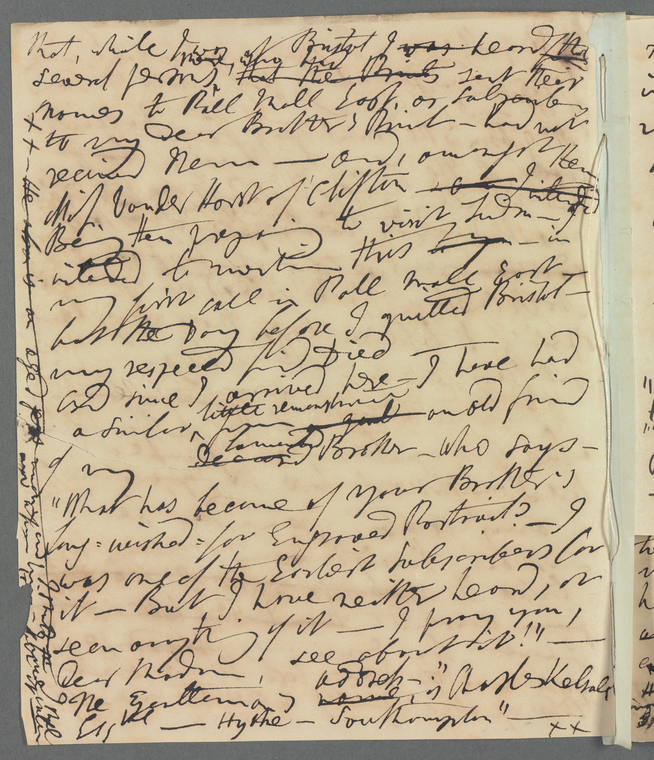 that, while I was at Bristol I was heard that
several persons, who had that the Prints sent their
names to Pall Mall East, as Subscribers
to my Dear Brother's Print – had not
received them — and, amongst them
Miss Vander Horst of Clifton –
Being then preparing to visit London – I
intended to mention this – in
my first call in Pall Mall East –
but the Day before I quitted Bristol –
my respected friend Died
And since I arrived here – I have had
a similar little remonstrance
from an old friend
of my lamented Brother – who says –
"What has become of your Brother's
long=wished=for Engraved Portrait? – I
was one of the Earliest Subscribers for
it – But I have neither heard, or
seen anything of it – I pray you,
Dear Madam, see about it!" —
The Gentleman's address – "is Charles Kelsall
Esqre — Hythe – Southampton" — x x
x x – He is